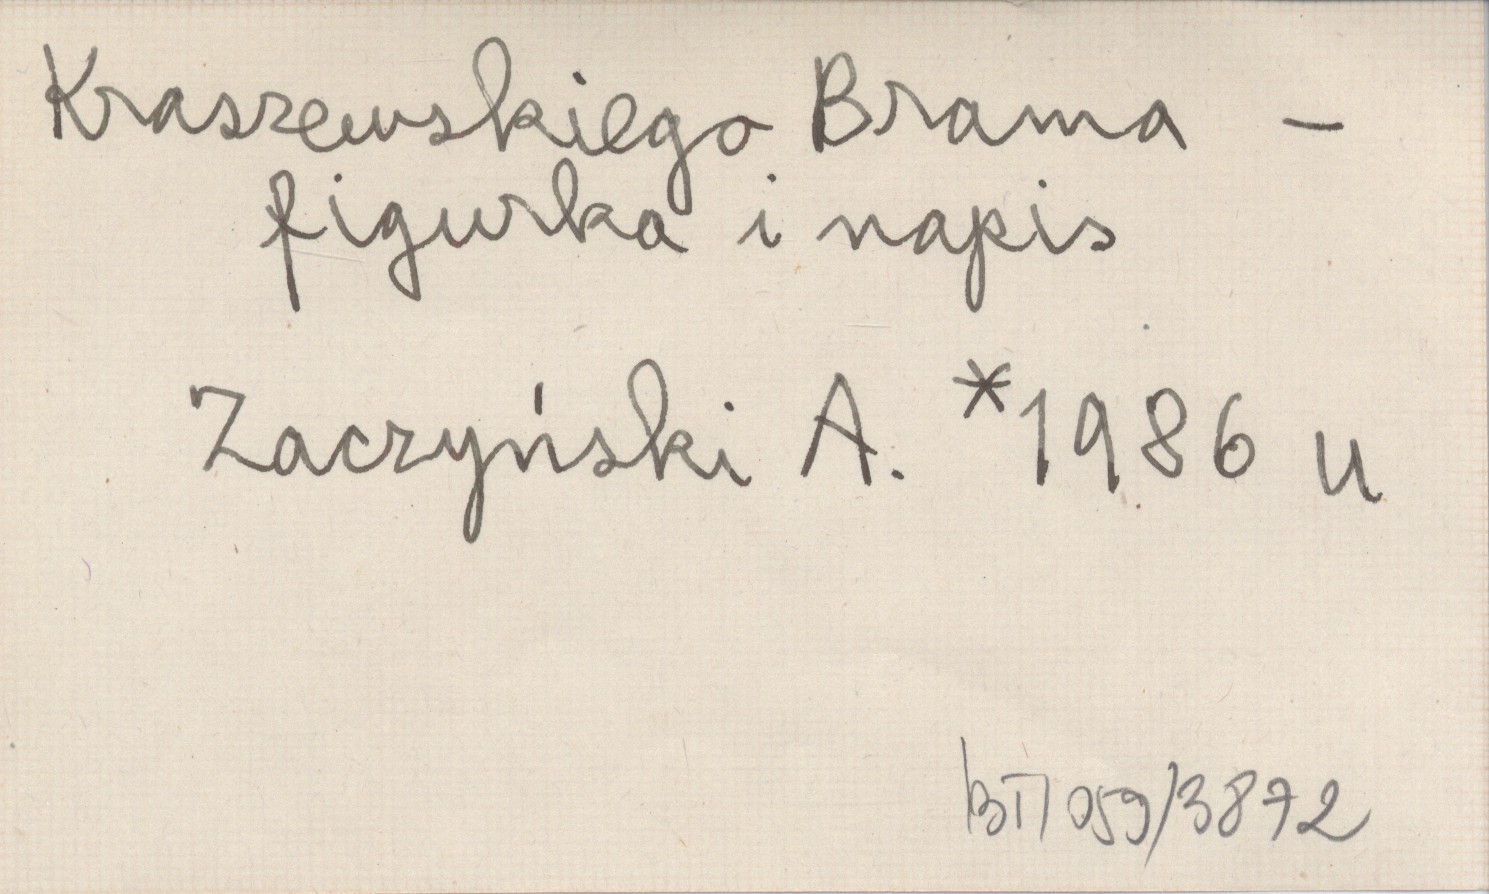 Kraszewskiego Brama –
figurka i napis
Zaczyński A. *1986 u
BT/059/3872